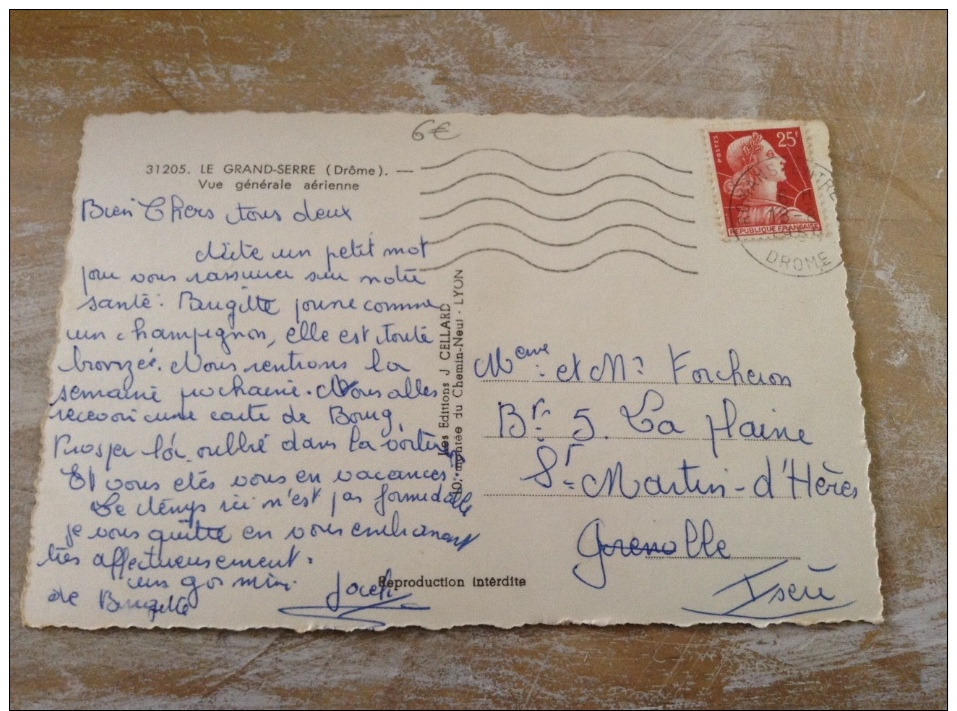 6€
31205. LE GRAND-SERRE (Drôme). —
Vue générale aérienne
Bien Chers tous deux
un petit mot
pour vous rassurer sur notre
santé: Brigitte pousse comme
un champignon, elle est toute
bronzée. Nous rentrons la
semaine prochaine. Vous allez
recevoir une carte de Bourg,
Prosper l'a oublié dans la voiture
Et vous etes vous en vacances.
Le temps ici n'est pas formidable
je vous quitte en vous embrassant
très affectueusement.
un gos mimi
de Brigitte
Les Editions J CELLARD
10, montée du Chemin-Neuf - LYON
Reproduction interdite
POSTES
25F
REPUBLIQUE FRANÇAISE
DROME
Meme et Mr Forcheron
Br 5. La plaine
St Martin-d'Hères
Grenoble
Isère